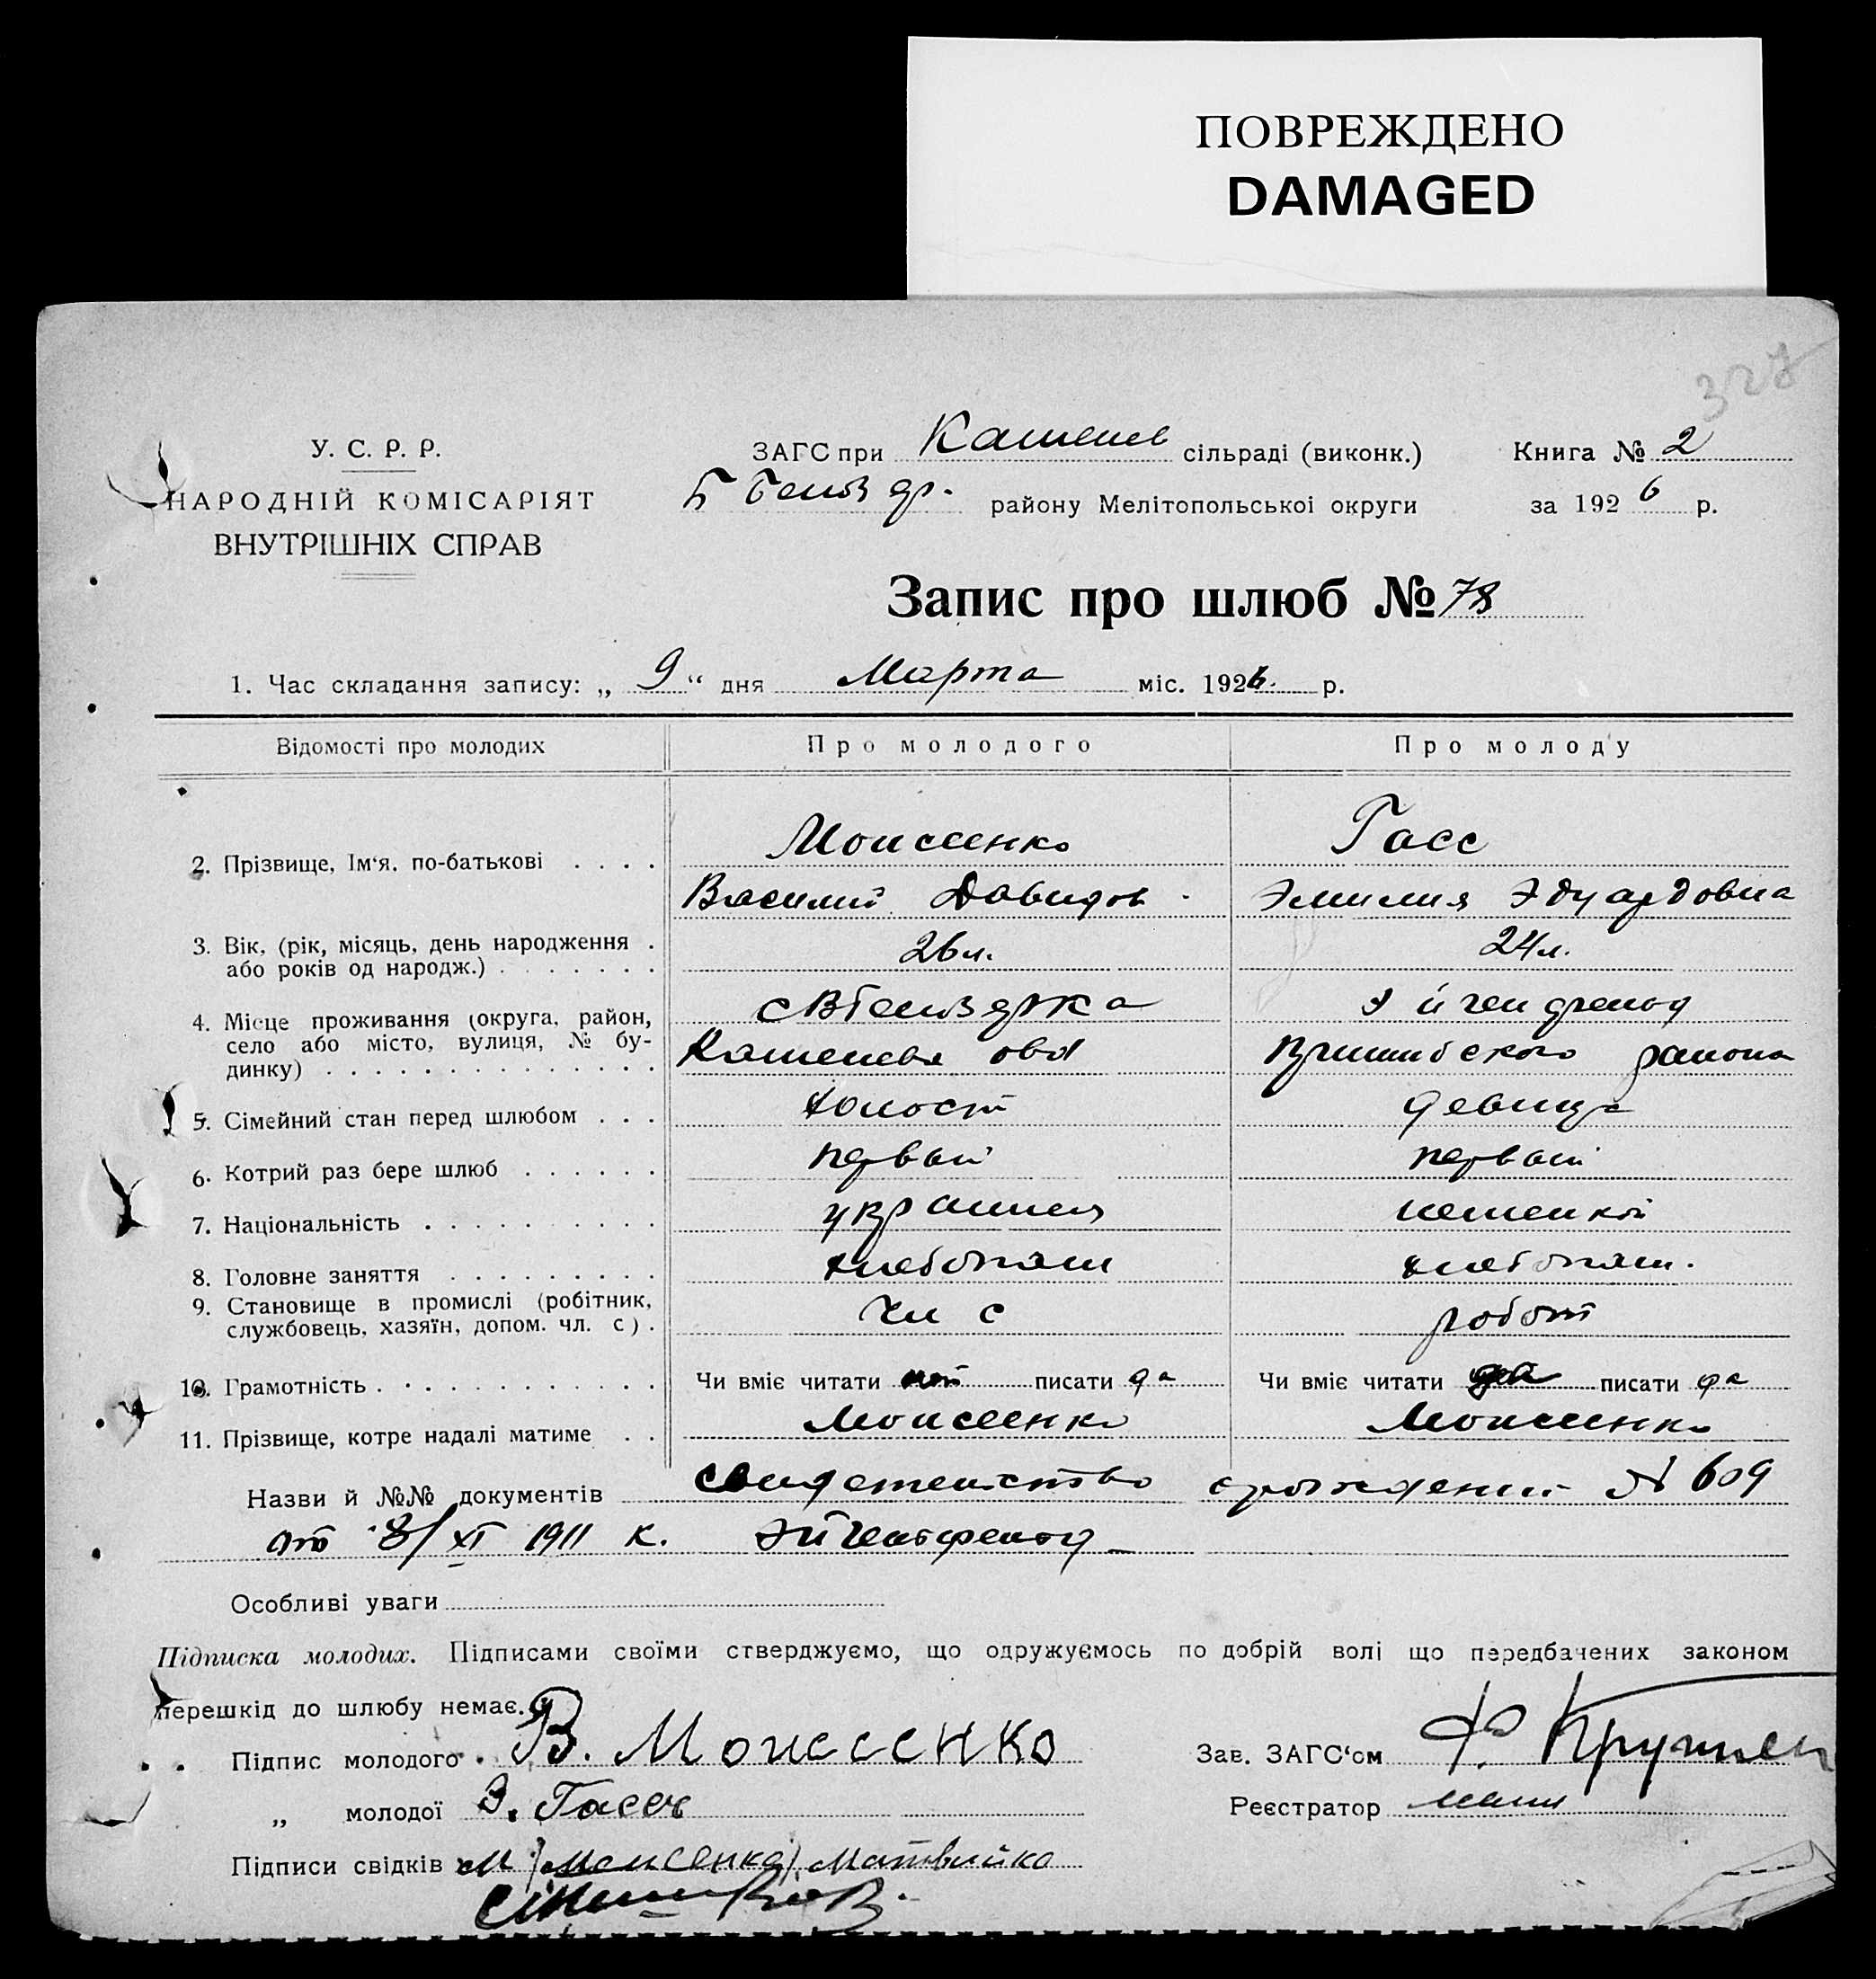 ПОВРЕЖДЕНО
DAMAGED
327
У. С. Р. Р.
НАРОДНІЙ КОМІСАРІЯТ
ВНУТРІШНІХ СПРАВ
ЗАГС при сільраді (виконк.) Книга № 2
району Мелітопольської округи за 1926 р.
Запис про шлюб № 78
1. Час складання запису: „ 9 “ дня Марта міс. 1926. р.
Відомості про молодих Про молодого Про молоду
2. Прізвище, Ім‘я, по-батькові . . . . Моисеенко Гасс
Василий Давидов Эмилия Эдуардовна
3. Вік, (рік, місяць, день народження . 26 л. 24 л.
або років од народж.) . . . . . . .
4. Місце проживання (округа, район,
село або місто, вулиця, № бу-
динку) . . . . . . . . . . . . . . района
5. Сімейний стан перед шлюбом . . . холост девица
6. Котрий раз бере шлюб . . . . . . первый первый
7. Національність . . . . . . . . . .
8. Головне заняття . . . . . . . . . хлебопаш хлебопаш.
9. Становище в промислі (робітник,
службовець, хазяїн, допом. чл. с) . Чл с работ
10. Грамотність . . . . . . . . . . . Чи вміє читати писати да Чи вміє читати да писати да
11. Прізвище, котре надалі матиме . . Моисеенко Моисеенко
Назви й №№ документів свидетельство о рождении № 609
от 8/XI 1911 к.
Особливі уваги
Підписка молодих. Підписами своїми стверджуємо, що одружуємось по добрій волі що передбачених законом
перешкід до шлюбу немає.
Підпис молодого . В. Моисеенко Зав. ЗАГС‘ом
„ молодої Э. Гассъ Реєстратор
Підписи свідків М Моисенко Матвийко